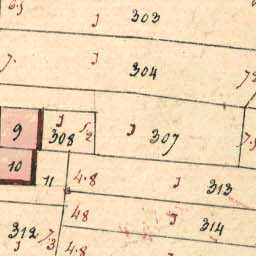 J 303
J 304
9 J 308 J 307
10 11 4.8 J 313
48 J 314
312 J
4.8